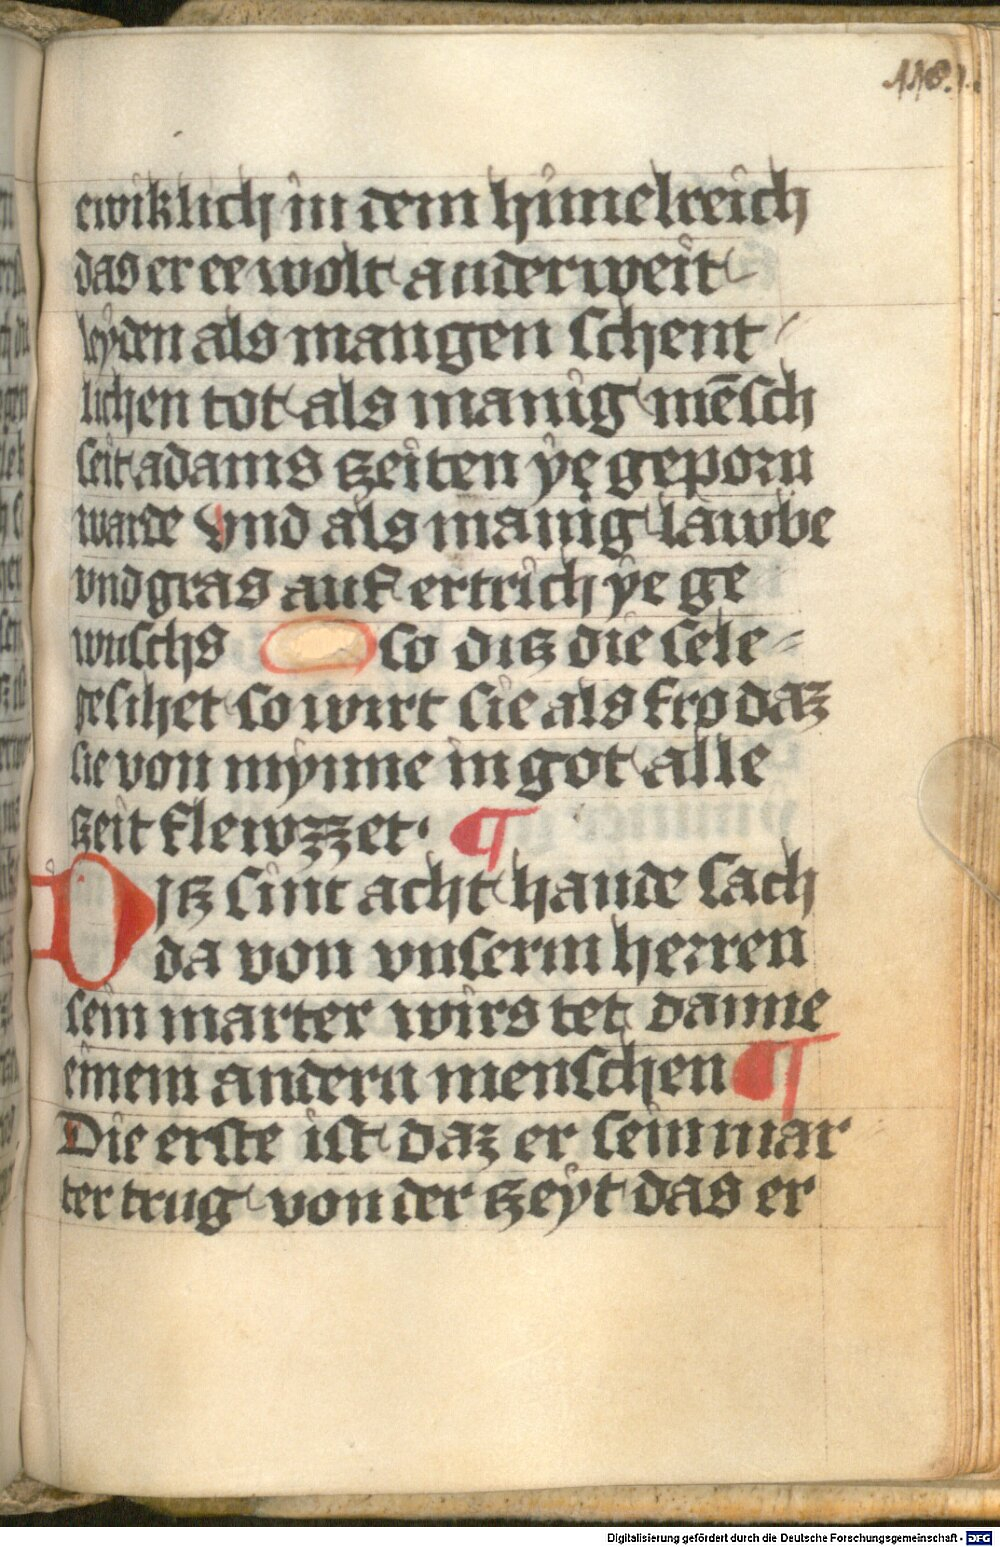 118.
ewiklich in dem himelreich
das er ee wolt anderweit
leyden als mangen schent-
lichen tot als manig mēsch
seit adams tzeiten ye geporn
warde vnd als manig lawbe
vnd gras auf ertrich ye ge
wuschs so ditz die sele-
gesihet so wirt sie als fro daz
sie von mynne in got alle
tzeit flewzzet· ¶
Ditz sint acht hande sach
da von vnserm herren
sein marter wirs tet danne
einem andern menschen ¶
Die erste ist daz er sein mar
ter trug von der tzeyt das er
Digitalisierung gefördert durch die Deutsche Forschungsgemeinschaft - DFG